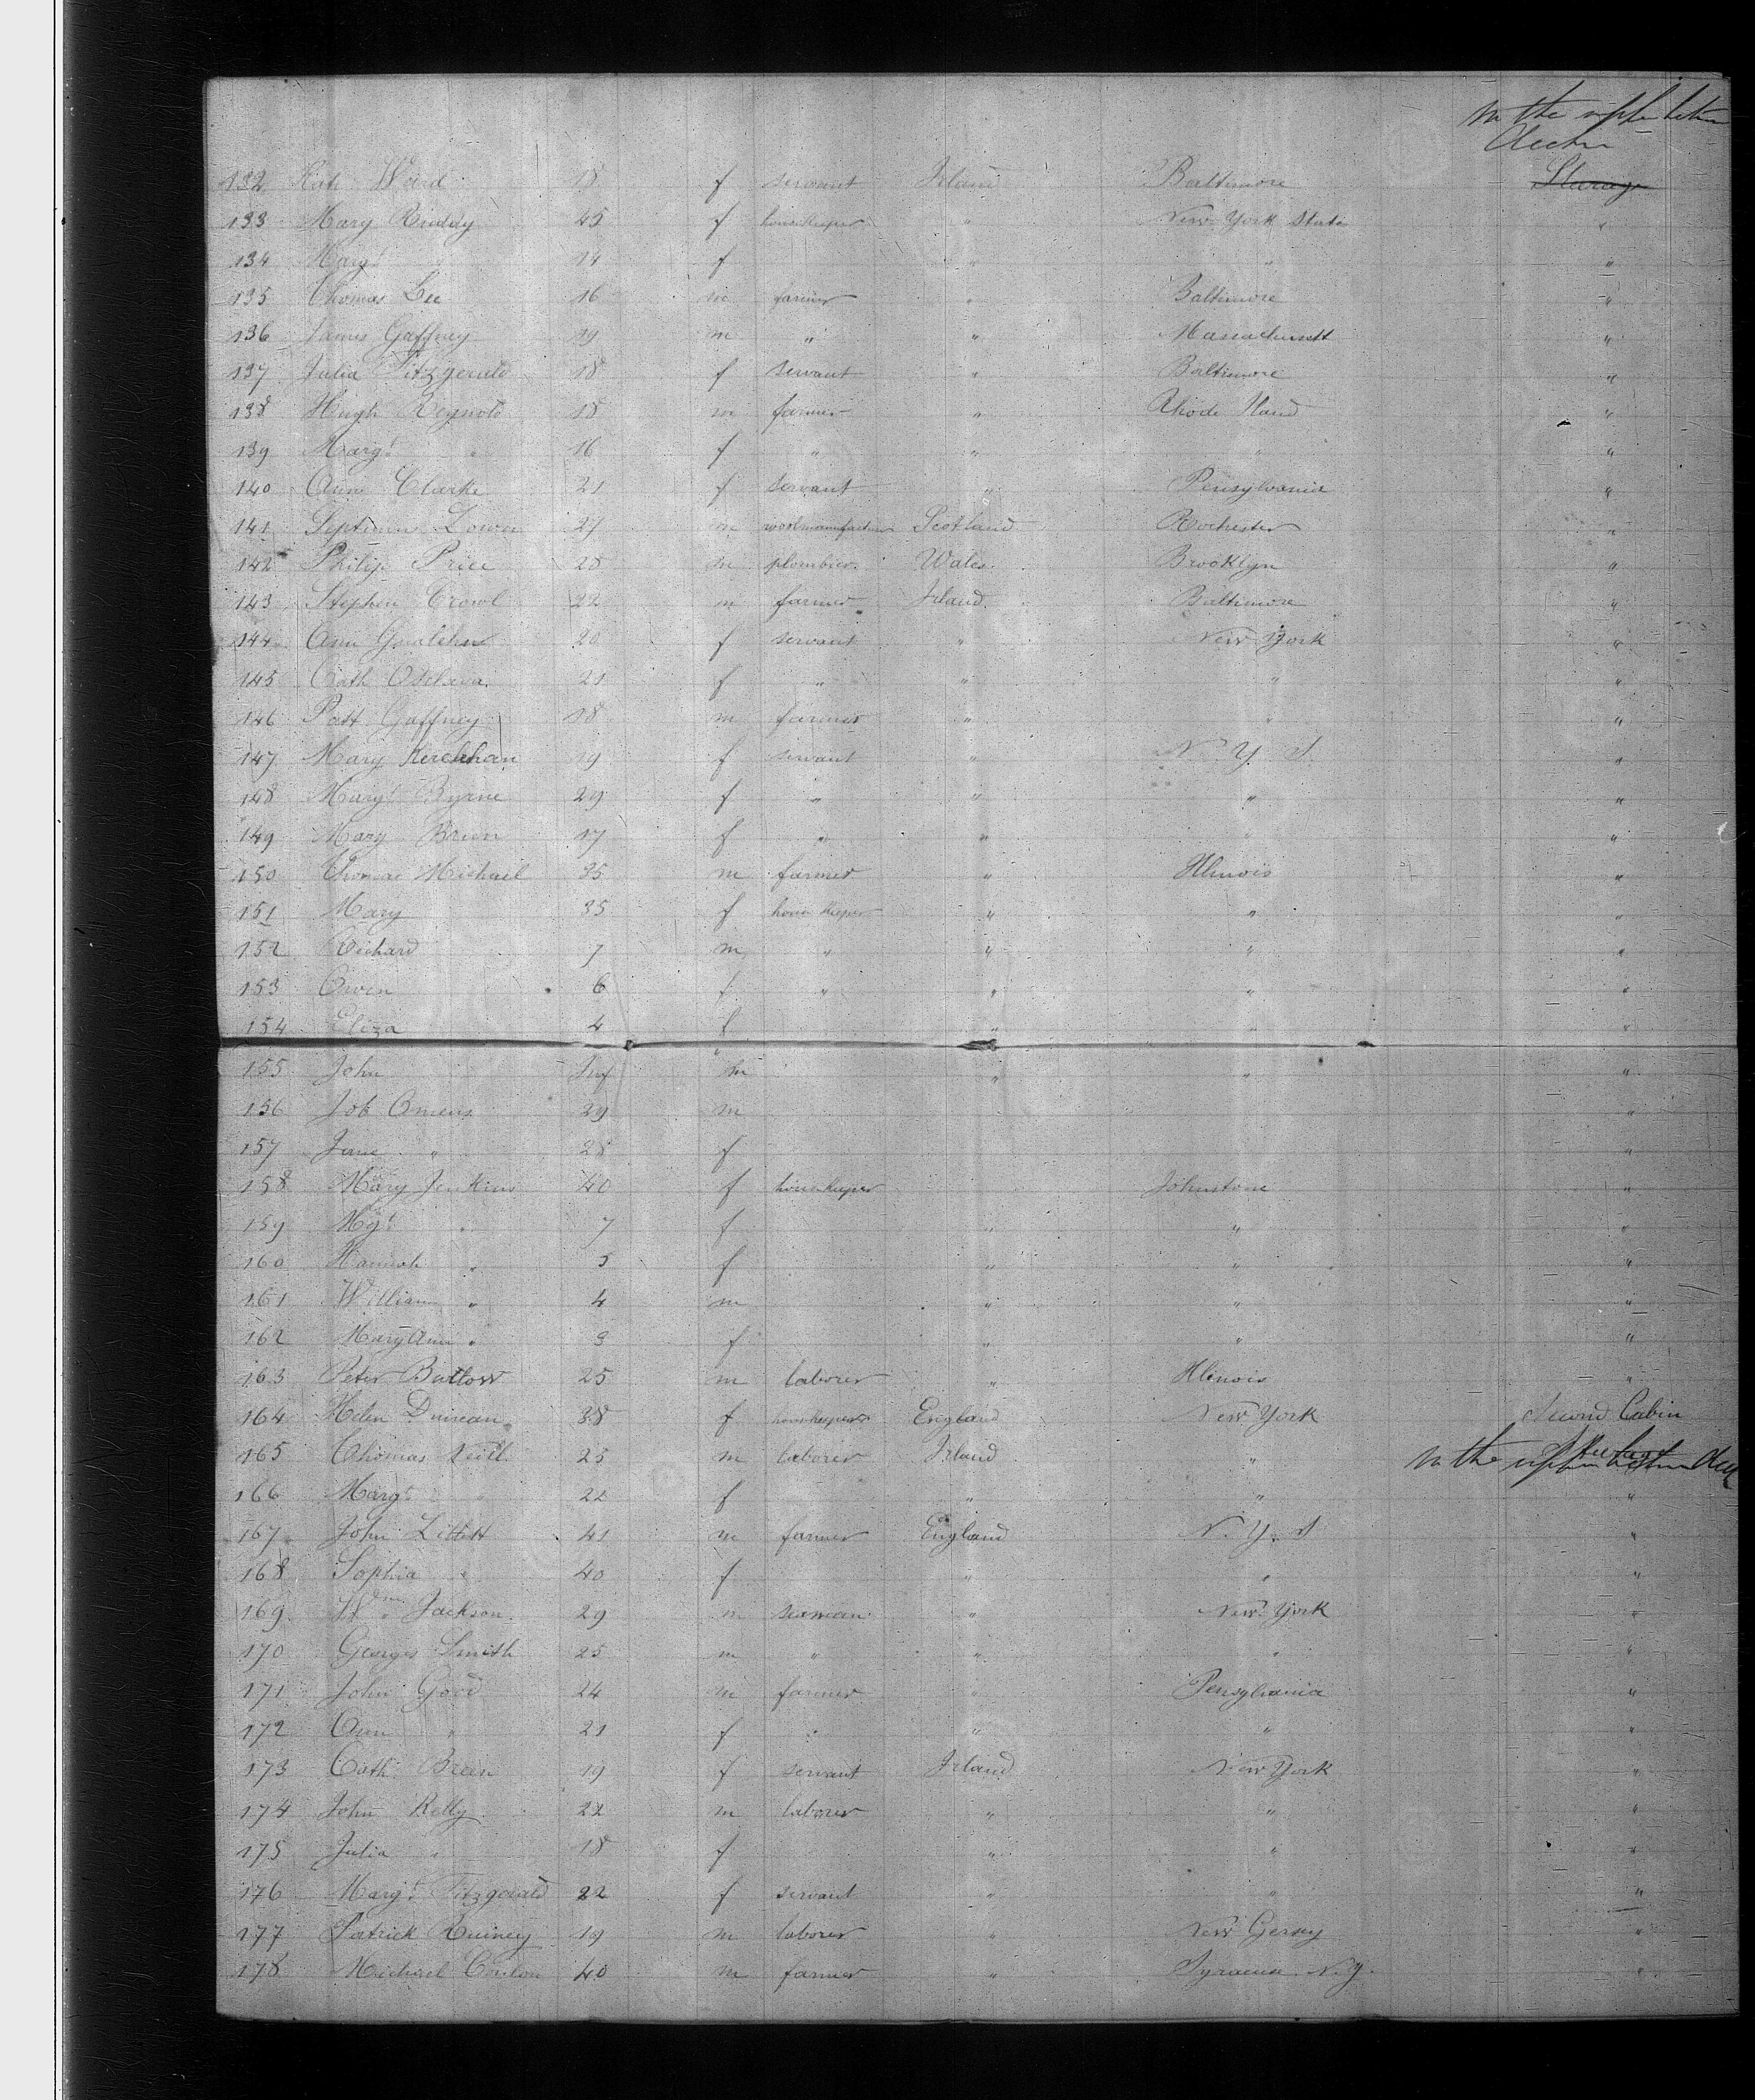 In the upper between
Decks
132 Kate Ward 18 f servant Irland Baltimore Steerage
133 Mary Ruddy 45 f housekeeper " New York State "
134 Margt " 14 f " " "
135 Thomas Lee 16 m farmer " Baltimore "
136 James Gaffney 19 m " " Massachusett "
137 Julia Fitzgerald 18 f servant " Baltimore "
138 Hugh Reynold 18 m farmer " Rhode Iland "
139 Margt " 16 f " " " "
140 Ann Clarke 21 f servant " Pensylvania "
141 27 m woolmanufacturer Scotland Rochester "
142 Philip Price 28 m plombier Wales Brooklyn "
143 Stephen Crowl 22 m farmer Irland Baltimore "
144 Ann 20 f servant " New York "
145 Cath 21 f " " " "
146 Patt Gaffney 18 m farmer " " "
147 Mary 19 f servant " N. Y. S. "
148 Margt Byrne 29 f " " " "
149 Mary Brien 17 f " " " "
150 Thomas Michael 35 m farmer " Illinois "
151 Mary 35 f house keeper " " "
152 Richard 7 m " " " "
153 Owen 6 f " " " "
154 Eliza 4 f " " " "
155 John Inf m " " "
156 Job Omens 29 m "
157 Jane " 28 f "
158 Mary Jenkins 40 f housekeeper Johnstone "
159 Mgt " 7 f " " "
160 Hannah " 5 f " " "
161 William " 4 m " " "
162 Mary Ann " 3 f " " "
163 Peter 25 m laborer " Illinois "
164 Helen Duncan 38 f housekeeper England New York Second Cabin
165 Thomas Neill 25 m laborer Irland " In the upper between deck
166 Margt " 22 f " " "
167 John 41 m farmer England N. Y. S "
168 Sophia " 40 f " " "
169 Wm Jackson 29 m seaman " New York "
170 Georges Smith 25 m " " " "
171 John Good 24 m farmer " Pensylvania "
172 Ann " 21 f " " " "
173 Cath Breen 19 f servant Irland New York "
174 John Kelly 22 m laborer " " "
175 Julia " 18 f " " "
176 Margt Fitzgerald 22 f servant " " "
177 Patrick 19 m laborer " New Gersey "
178 Michael Conlon 40 m farmer " Syracua N.Y. "